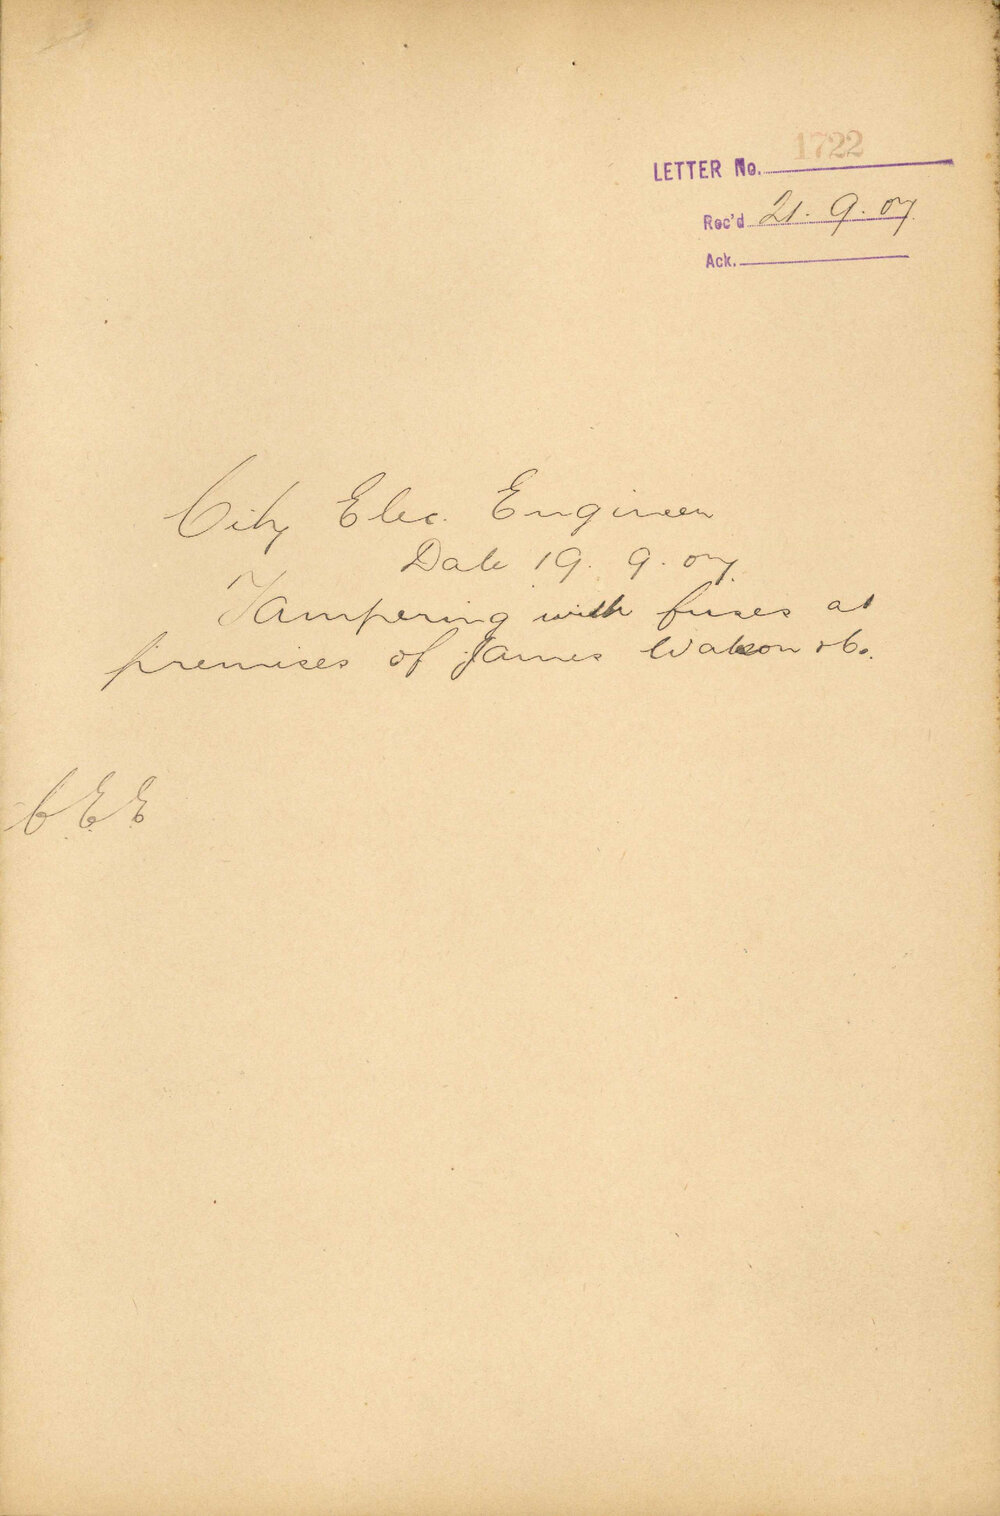 LETTER No. 1722
Rec'd 21. 9. 07
Ack.
City Elec. Engineer
Date 19. 9. 07.
Tampering with fuses at
premises of James Watson & Co.
C.E.E